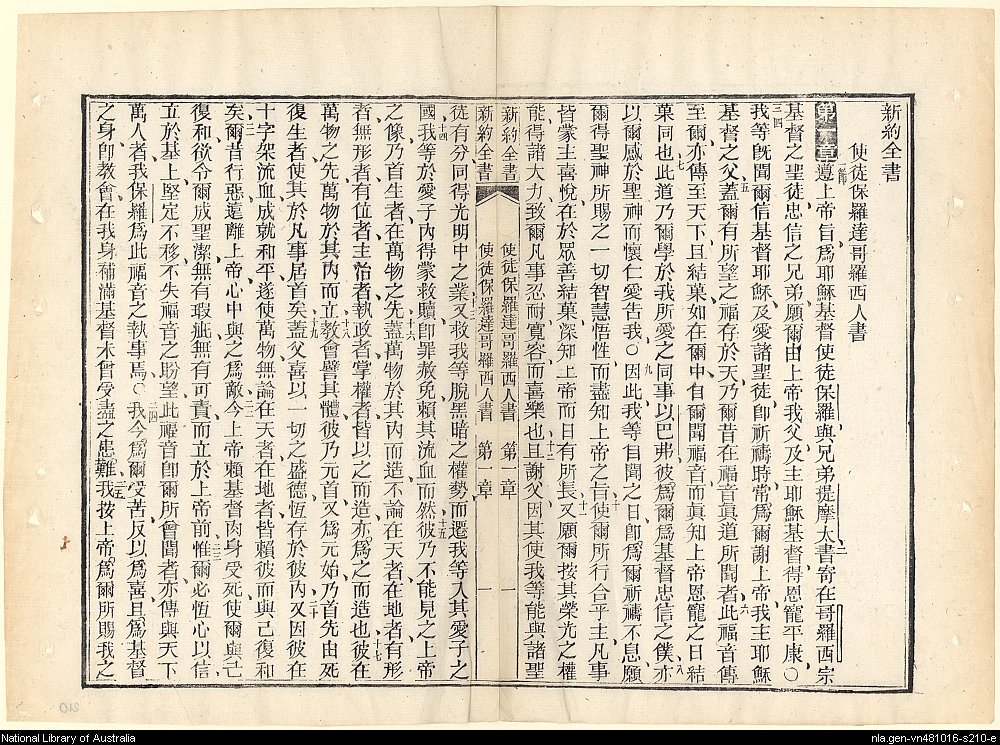 新約全書
使徒保羅達哥羅西人書
第一章遵上帝旨爲耶穌基督使徒保羅與兄弟提摩太書寄在哥羅西宗
基督之聖徒忠信之兄弟願爾由上帝我父及主耶穌基督得恩寵平康〇
我等旣聞爾信基督耶穌及愛諸聖徒卽祈禱時常爲爾謝上帝我主耶穌
基督之父蓋爾有所望之福存於天乃爾昔在福音眞道所聞者此福音傳
至爾亦傳至天下且結菓如在爾中自爾聞福音而眞知上帝恩寵之日結
菓同也此道乃爾學於我所愛之同事以巴弗彼爲爾爲基督忠信之僕亦
以爾感於聖神而懷仁愛告我〇因此我等自聞之日卽爲爾祈禱不息願
爾得聖神所賜之一切智慧悟性而盡知上帝之旨使爾所行合乎主凡事
皆蒙主喜悅在於眾善結菓深知上帝而日有所長又願爾按其榮光之權
能得諸大力致爾凡事忍耐寬容而喜樂也且謝父因其使我等能與諸聖
新約全書 使徒保羅達哥羅西人書 第一章 一
新約全書 使徒保羅達哥羅西人書 第一章 一
徒有分同得光明中之業又救我等脫黑暗之權勢而遷我等入其愛子之
國我等於愛子內得蒙救贖卽罪赦免賴其流血而然彼乃不能見之上帝
之像乃首生者在萬物之先蓋萬物於其內而造不論在天者在地者有形
者無形者有位者主治者執政者掌權者皆以之而造亦爲之而造也彼在
萬物之先萬物於其內而立教會譬其體彼乃元首又爲元始乃首先由死
復生者使其於凡事居首矣蓋父喜以一切之盛德恆存於彼內又因彼在
十字架流血成就和平遂使萬物無論在天者在地者皆賴彼而與己復和
矣爾昔行惡遠離上帝心中與之爲敵今上帝賴基督肉身受死使爾與己
復和欲令爾成聖潔無有瑕疵無有可責而立於上帝前惟爾必恆心以信
立於基上堅定不移不失福音之盼望此福音卽爾所曾聞者亦傳與天下
萬人者我保羅爲此福音之執事焉〇我今爲爾受苦反以爲喜且爲基督
之身卽教會在我身補滿基督未曾受盡之患難我按上帝爲爾所賜我之
National Library of Australia
nla.gen-vn481016-s210-e